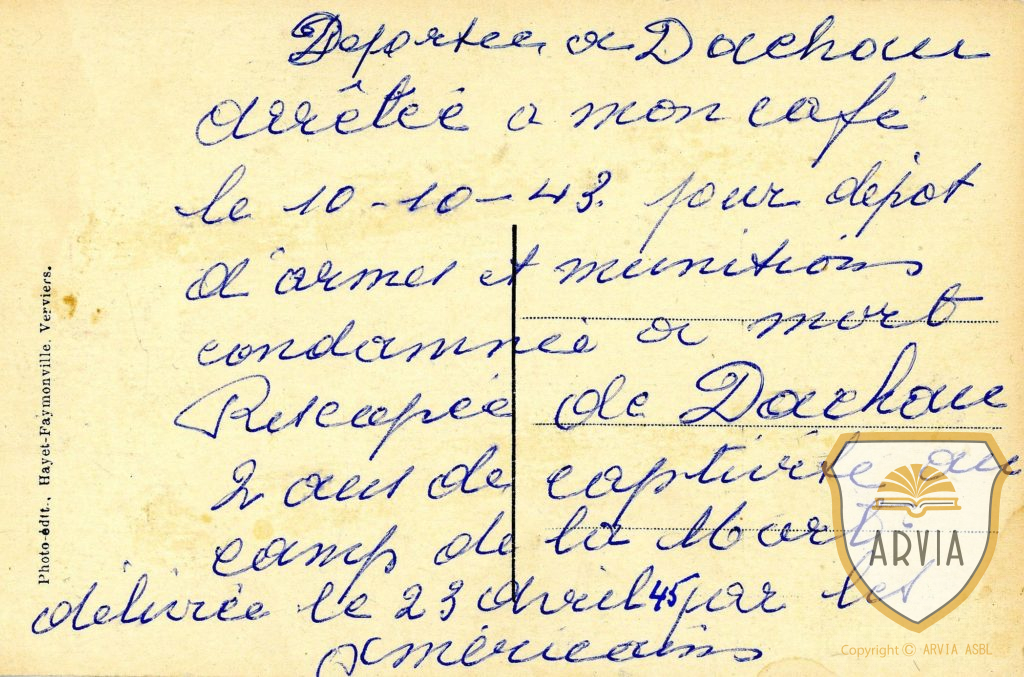 Deportee a Dachau
arrêtée a mon café
le 10-10-43. pour depot
d'armes et munitions
condamnée a mort
Rescapée de Dachau
2 ans de captivité au
camp de la Mort.
délivrée le 23 avril 45 par les
Américains
Photo-édit., Hayet-Faymonville, Verviers.
ARVIA
Copyright © ARVIA ASBL